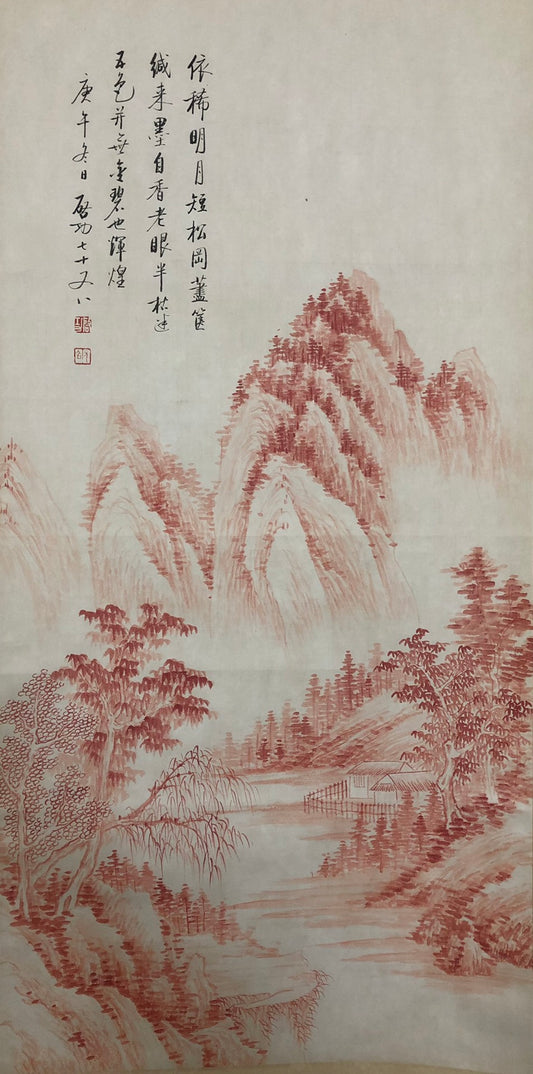 依稀明月短松岡藎篋
緘来墨自香老眼半枯迷
五色并無金碧也輝煌
庚午冬日啓功七十又八